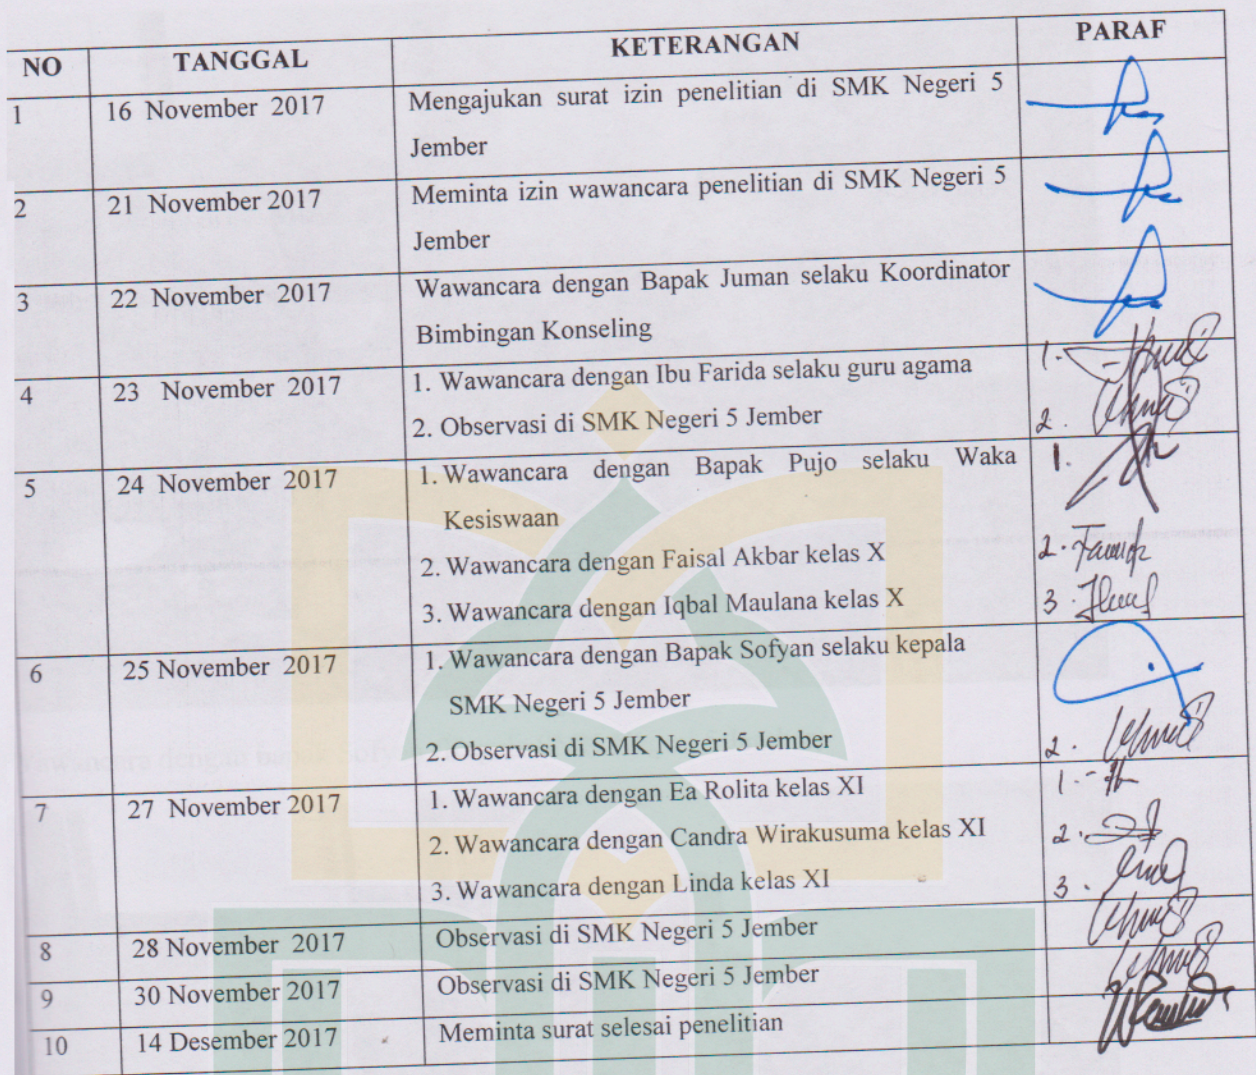 NO TANGGAL KETERANGAN PARAF
1 16 November 2017 Mengajukan surat izin penelitian di SMK Negeri 5
Jember
2 21 November 2017 Meminta izin wawancara penelitian di SMK Negeri 5
Jember
3 22 November 2017 Wawancara dengan Bapak Juman selaku Koordinator
Bimbingan Konseling
4 23 November 2017 1. Wawancara dengan Ibu Farida selaku guru agama 1.
2. Observasi di SMK Negeri 5 Jember 2.
5 24 November 2017 1. Wawancara dengan Bapak Pujo selaku Waka 1.
Kesiswaan
2. Wawancara dengan Faisal Akbar kelas X 2.
3. Wawancara dengan Iqbal Maulana kelas X 3.
6 25 November 2017 1. Wawancara dengan Bapak Sofyan selaku kepala
SMK Negeri 5 Jember
2. Observasi di SMK Negeri 5 Jember 2.
7 27 November 2017 1. Wawancara dengan Ea Rolita kelas XI 1.
2. Wawancara dengan Candra Wirakusuma kelas XI 2.
3. Wawancara dengan Linda kelas XI 3.
8 28 November 2017 Observasi di SMK Negeri 5 Jember
9 30 November 2017 Observasi di SMK Negeri 5 Jember
10 14 Desember 2017 Meminta surat selesai penelitian